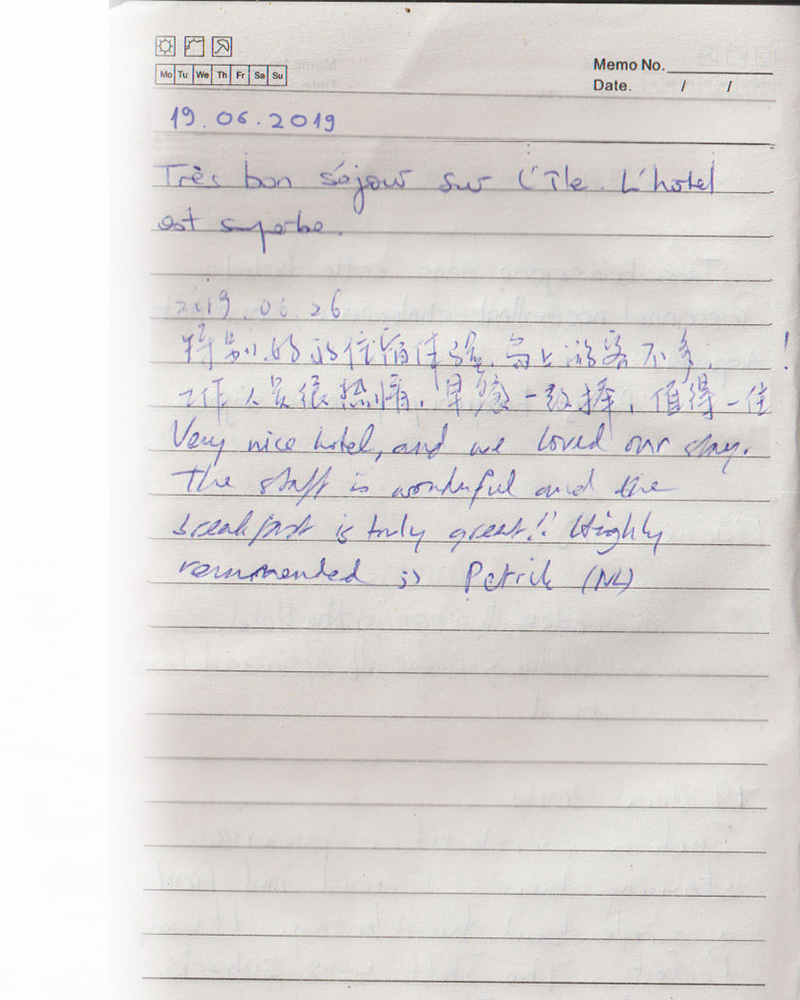 Mo Tu We Th Fr Sa Su
Memo No.
Date. / /
19.06.2019
Très bon séjour sur l'île. L'hotel
est superbe.
2019.06.26
特别的的住宿体验,岛上游客不多, !
工作人员很热情,早餐一致择,值得一住
Very nice hotel, and we loved our stay.
The staff is wonderful and the
breakfast is truly great!! Highly
recommended :) Patrik (NL)